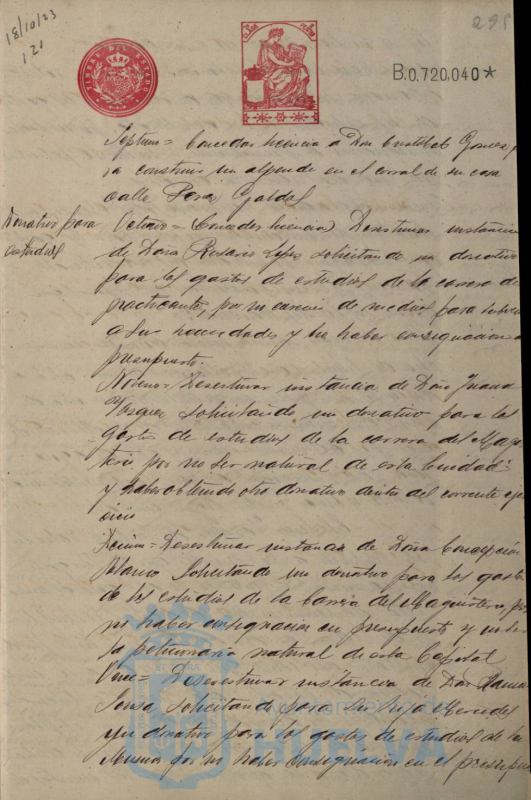 18/10/23
121
295
TIMBRE DEL ESTADO
B.0.720,040*
Septimo= Conceder licencia a Don Cristobal Gomez p.
ra construir un alpende en el corral de su casa
calle Perez Galdos
Donativo para
estudios
Octavo= Conceder licencia Desestimar instancia
de Doña Rosario solicitando un donativo
para los gastos de estudios de la carrera de
practicante, por su carencia de medios para
a sus necesidades y no haber consignacion
presupuesto.
Noveno= Desestimar instancia de Doña Juana
Vazquez solicitando un donativo para los
gastos de estudios de la carrera del Magis
terio por no ser natural de esta Ciudad
y haber obtenido otro donativo dentro del corriente eje
cicio
Decimo= Desestimar instancia de Doña Concepción
Blanco solicitando un donativo para los gastos
de los estudios de la carrera del Magisterio, por
no haber consignacion en presupuesto y no ser
la peticionaria natural de esta Capital
Once= Desestimar instancia de Don
Sousa solicitando para su hija Mercedes
un donativo para los gastos de estudios de la
misma por no haber consignacion en el presupues
Ayuntamiento
HUELVA